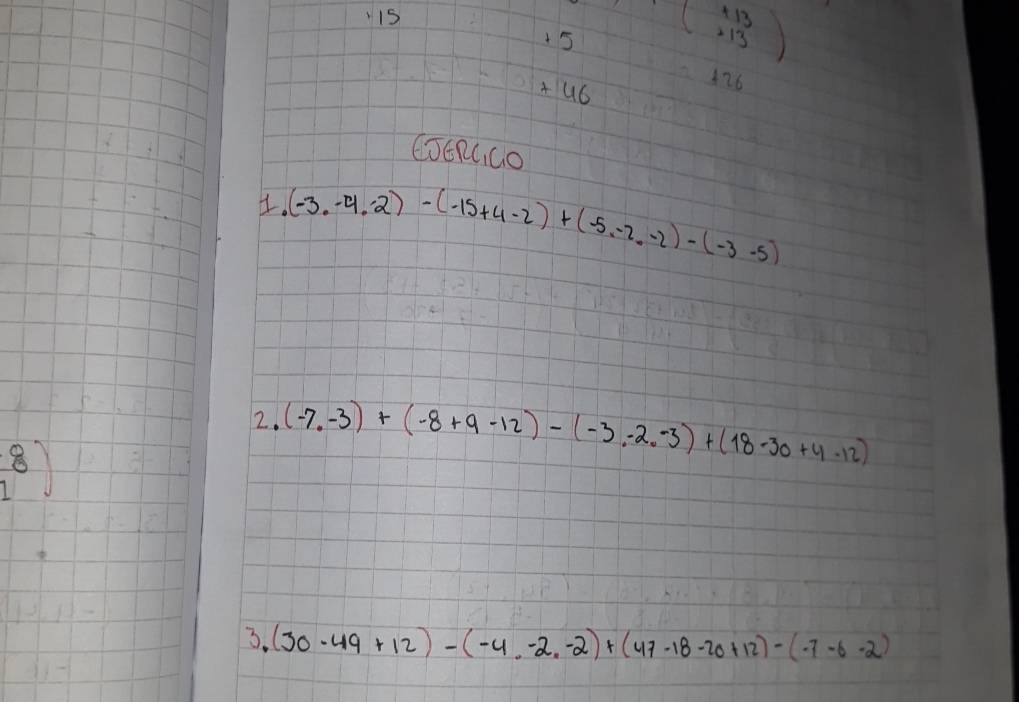 +15
+5
+46
( +13
+13 )
+26
EJERCICIO
1.(-3.-4.-2) -(-15+4-2)+(-5.-2.-2)-(-3-5)
2.(-7.-3) + (-8+9-12) - (-3.-2.-3) + (18-30+4-12)
-8)
1
3.(30-49+12) -(-4.-2.-2)+(47-18-20+12)-(-7-6-2)